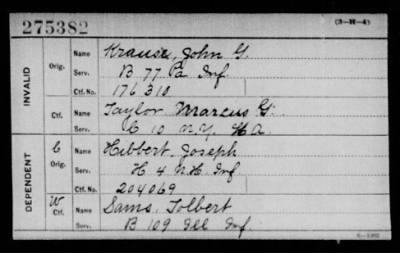 275382 (3-H-4)
INVALID
Orig. Name Krause, John G.
Serv. B 77 Pa Inf.
Ctf. No. 176310
Ctf. Name Taylor Marcus G.
Serv. C 10 N.Y. H A.
DEPENDENT
C Orig. Name Hibbert, Joseph
Serv. H 4 N.H. Inf.
Ctf. No. 204069
W Ctf. Name Sams, Tolbert
Serv. B 109 Ill Inf.